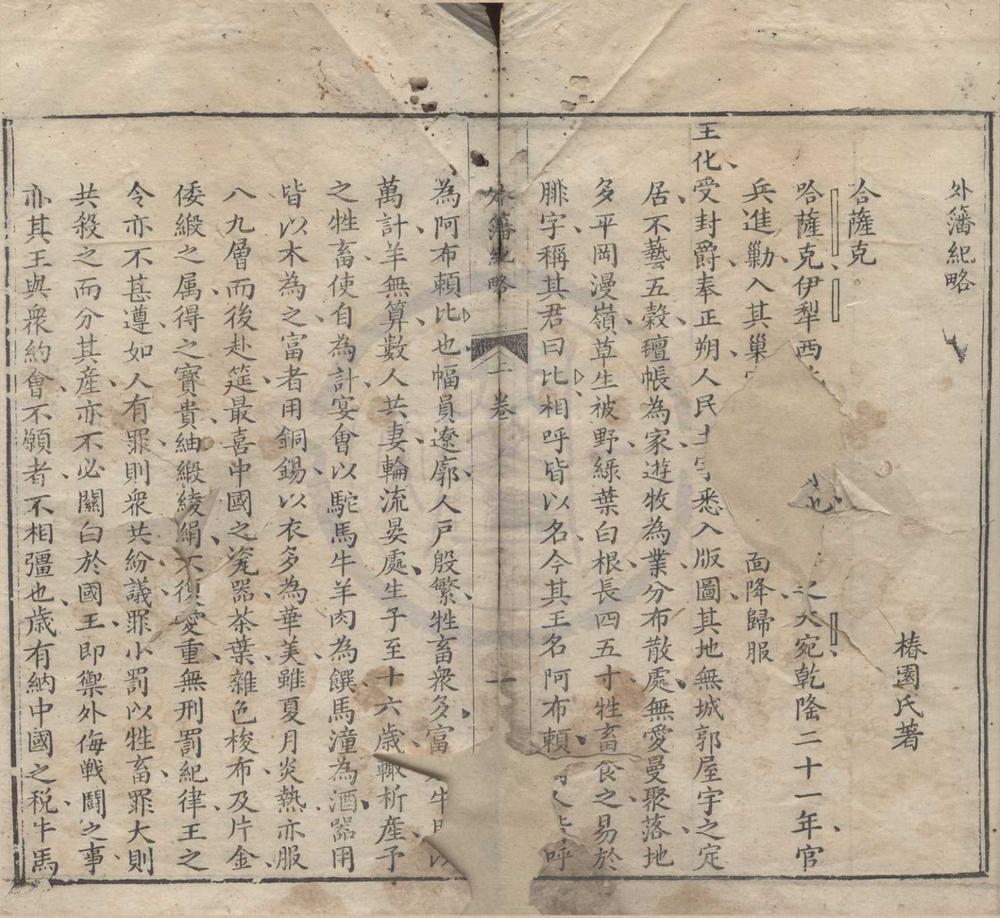 外藩紀略
椿園氏著
哈薩克
哈薩克伊犁西之大宛乾隆二十一年官
兵進勦入其巢面降歸服
王化受封爵奉正朔人民土宇悉入版圖其地無城郭屋宇之定
居不藝五穀氊帳為家遊牧為業分布散處無愛曼聚落地
多平岡漫嶺草生被野綠葉白根長四五寸牲畜食之易於
腓字稱其君曰比相呼皆以名今其王名阿布賴呼
外藩紀略
卷
一
為阿布賴比也幅員遼廓人戶殷繁牲畜衆多富牛以
萬計羊無算數人共妻輪流晏處生子至十六歲輙析產予
之牲畜使自為計宴會以駝馬牛羊肉為饌馬湩為酒器用
皆以木為之富者用銅錫以衣多為華美雖夏月炎熱亦服
八九層而後赴筵最喜中國之瓷器茶葉雜色梭布及片金
倭緞之属得之寶貴紬緞綾絹不復愛重無刑罰紀律王之
令亦不甚遵如人有罪則衆共紛議罪小罰以牲畜罪大則
共殺之而分其產亦不必關白於國王即禦外侮戰鬪之事
亦其王與衆約會不願者不相彊也歲有納中國之税牛馬